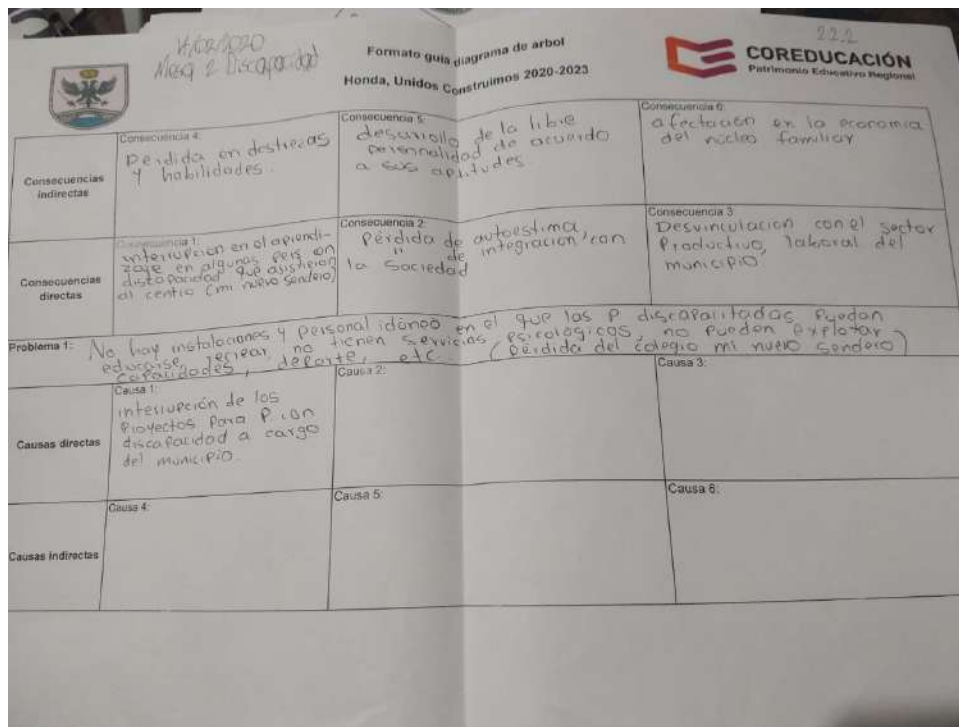 Mesa 2 Discapacidad
Formato guía diagrama de arbol
Honda, Unidos Construimos 2020-2023
22.2
COREDUCACIÓN
Patrimonio Educativo Regional
Consecuencias indirectas
Consecuencia 4:
Perdida en destrezas
y habilidades.
Consecuencia 5:
desarrollo de la libre
personalidad de acuerdo
a sus aptitudes.
Consecuencia 6:
afectacion en la economia
del nucleo familiar
Consecuencias directas
Consecuencia 1:
interrupcion en el aprendi-
zaje en algunas pers on
discapacidad que asistieron
al centro (mi nuevo sendero)
Consecuencia 2:
Pérdida de autoestima,
" de integracion con
la sociedad
Consecuencia 3:
Desvinculacion con el sector
Productivo, laboral del
municipio.
Problema 1: No hay instalaciones y personal idoneo en el que las P discapacitadas Puedan
educarse, recrear, no tienen servicios psicologicos, no pueden explotar
capacidades, deporte, etc... (pérdida del colegio mi nuevo sendero)
Causas directas
Causa 1:
interrupción de los
Proyectos para P. con
discapacidad a cargo
del municipio.
Causa 2:
Causa 3:
Causas indirectas
Causa 4:
Causa 5:
Causa 6: